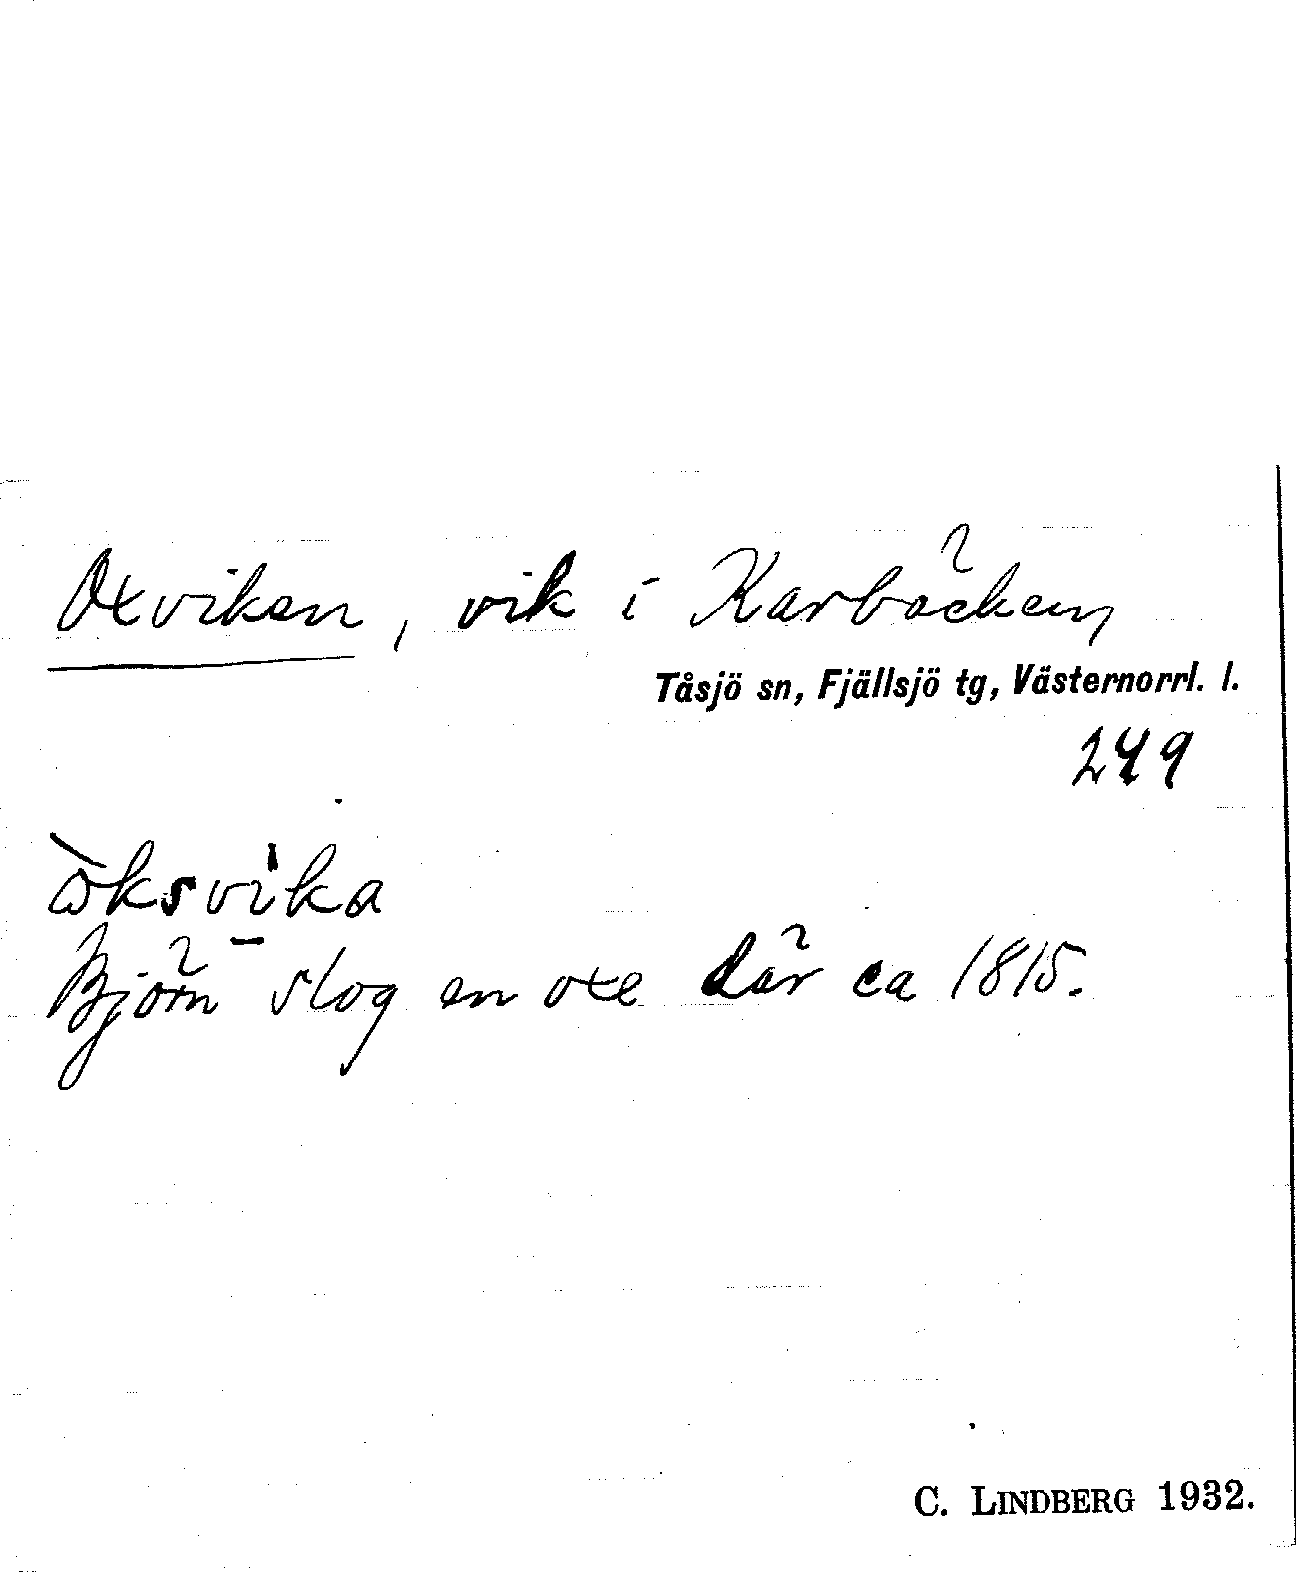 Oxviken, vik i Karbäcken,
Tåsjö sn, Fjällsjö tg, Västernorrl. l.
249
òksvika
Björn slog en oxe där ca 1815.
C. LINDBERG 1932.